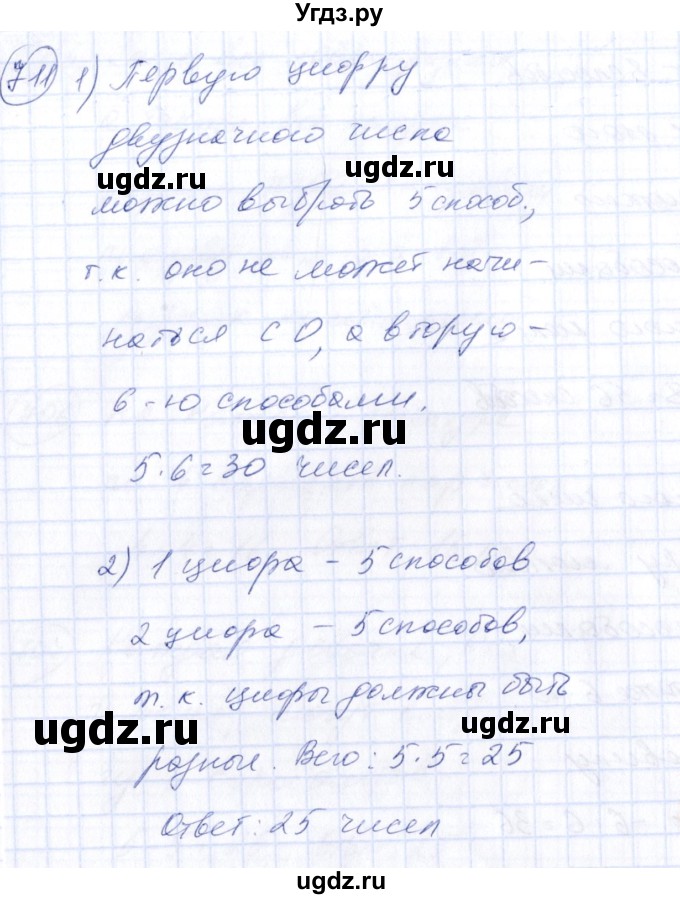 Угдз.ру
711 1) Первую цифру
двузначного числа
ugdz.ru ugdz.ru
можно выбрать 5 способ.,
т.к. оно не может начи-
наться с 0, а вторую -
6-ю способами.
ugdz.ru
5·6=30 чисел.
2) 1 цифра - 5 способов
2 цифра - 5 способов,
т.к. цифры должны быть
ugdz.ru ugdz.ru
разные. Всего: 5·5=25
Ответ: 25 чисел
ugdz.ru